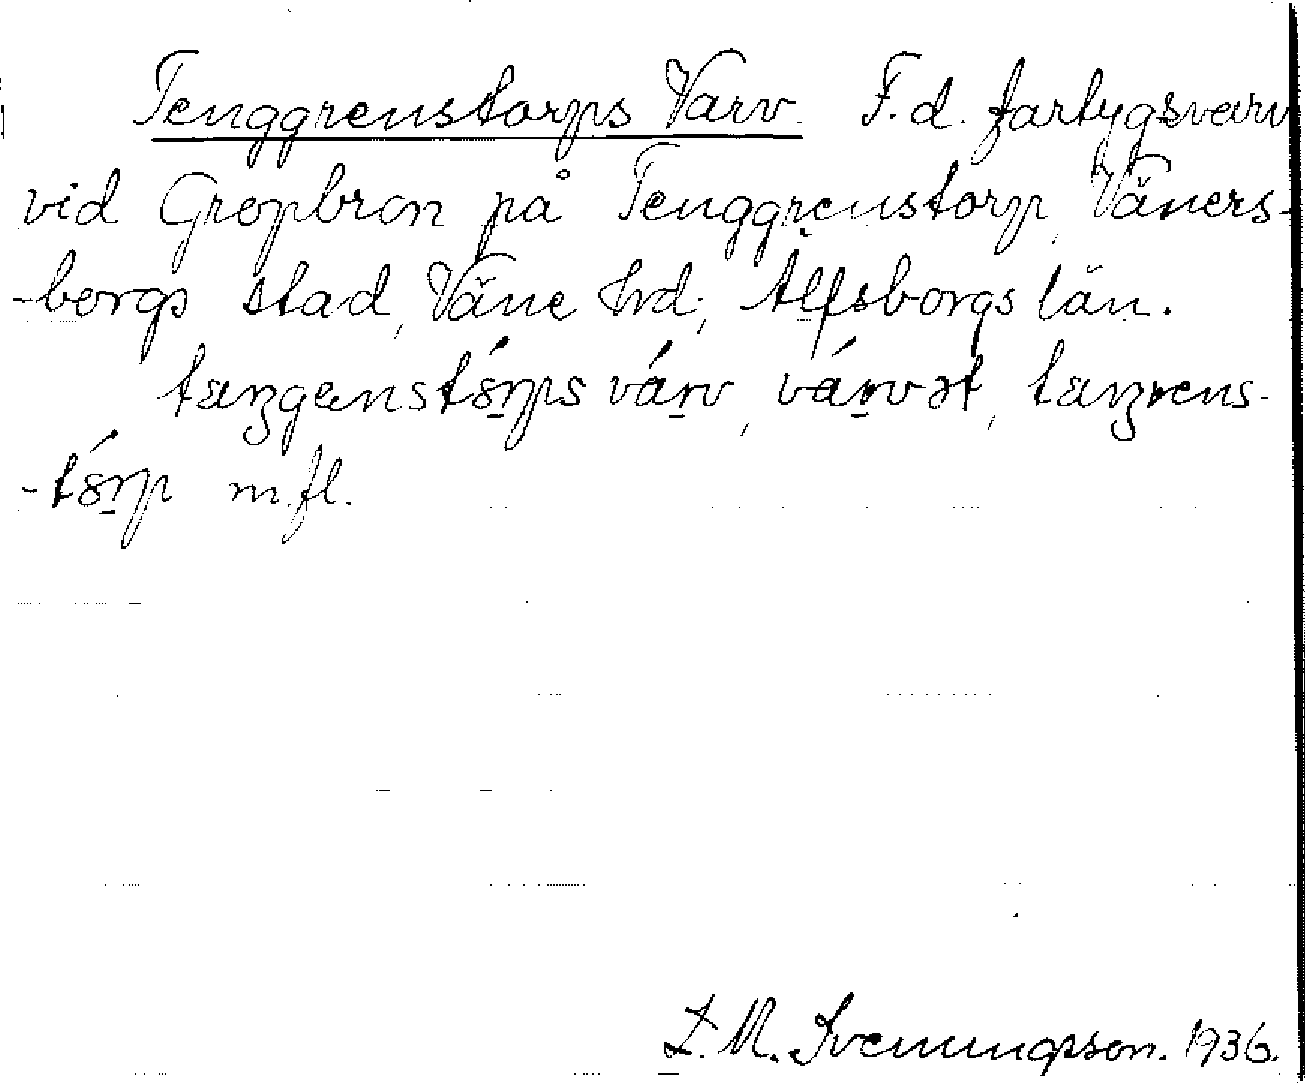 Tenggrenstorps Varv. F.d. fartygsvarv
vid Gropbron på Tenggrenstorp, Väners-
-borgs stad, Väne hrd, Älfsborgs län.
taŋgænstórps várv, várvət, taŋrens-
-tórp m.fl.
L.M. Svenungsson. 1936.